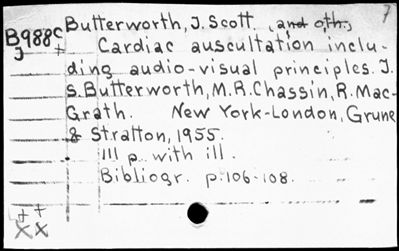 Butterworth, J. Scott, and oth.,
7
B988c
J +
Cardiac auscultation inclu-
ding audio-visual principles. J.
S. Butterworth, M.R. Chassin, R. Mac-
Grath. New York-London, Grune
& Stratton, 1955.
111 p. with ill.
Bibliogr. p. 106-108.
+ +
XX